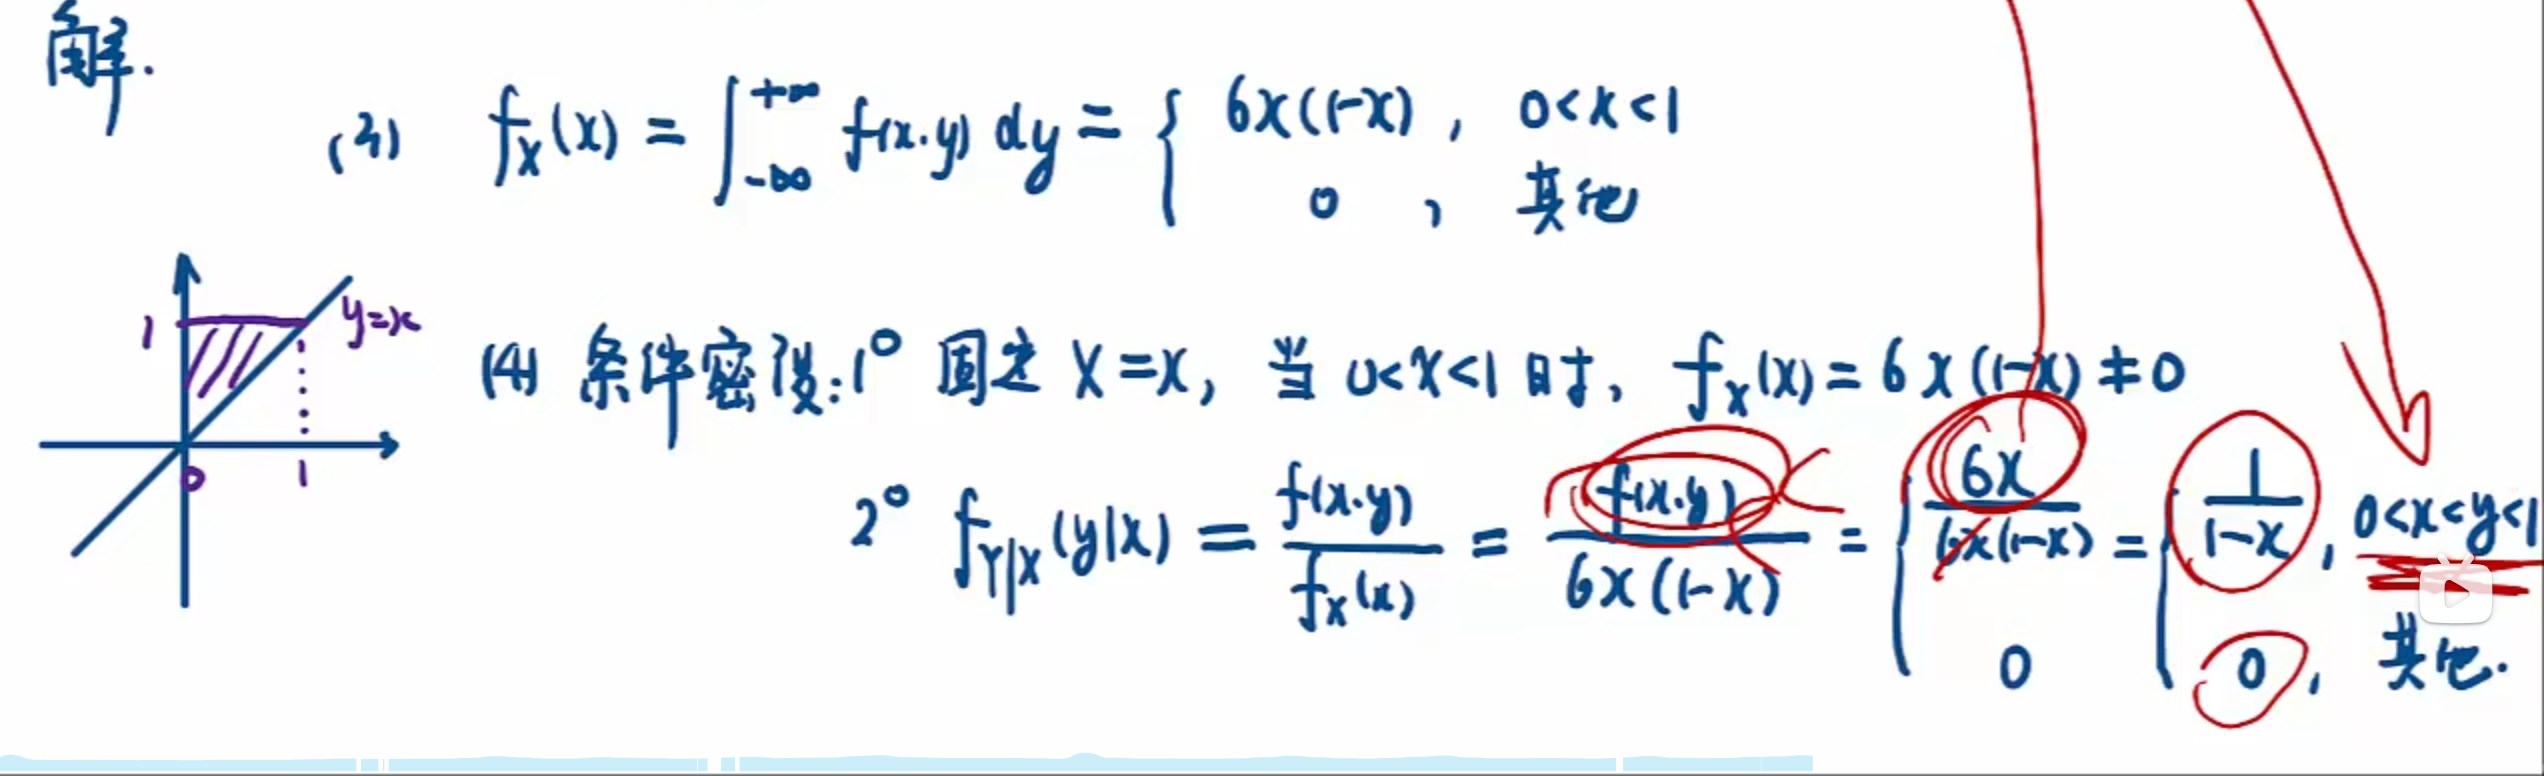 解.
(3) f_X(x) = ∫_{-∞}^{+∞} f(x.y) dy = { 6x(1-x), 0<x<1
0, 其他
1
y=x
0
1
(4) 条件密度: 1° 固定 X=x, 当 0<x<1 时, f_X(x) = 6x(1-x) ≠ 0
2° f_{Y|X}(y|x) = f(x.y)/f_X(x) = f(x.y)/6x(1-x) = { 6x/6x(1-x) = { 1/1-x, 0<x<y<1
0 0, 其他.